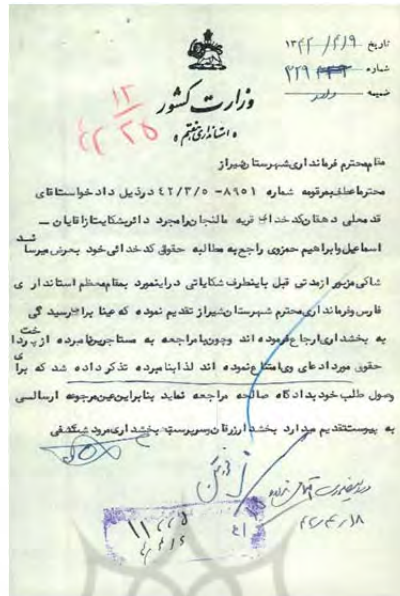 تاریخ ۱۳۴۲/۴/۹
شماره
ضمیمه
وزارت کشور
استانداری هفتم
۱۳
۲۵
مقام محترم فرمانداری شهرستان شیراز
محترما عطف بمرقومه شماره ۸۹۰۱- ٤٢/٣/٥ درذیل دادخواست آقای
قدمعلی دهقان کدخدای قریه مجرد دائر بشکایت از آقایان -
اسماعیل وابراهیم حمزوی راجع به مطالبه حقوق کدخدائی خود بعرض میرسا
شاکی مزبور ازمدتی قبل باینطرف شکایاتی دراینمورد بمقام معظم استانداری
فارس وفرمانداری محترم شهرستان شیراز تقدیم نموده که عینا برای رسیدگی
به بخشداری ارجاع فرموده اند وچون با مراجعه به مستاجرین نامبرده از پرداخت
حقوق مورد ادعای وی امتناع نموده اند لذا بنامبرده تذکر داده شد که برای
وصول طلب خود بدادگاه صالحه مراجعه نماید بنابراین عین مرجوعه ارسالی
به پیوست تقدیم میدارد بخشدار زرقان وسرپرست بخشداری مرودشت کشفی
۴۲/۴/۱۸
۱۱۲۲۵
٤١